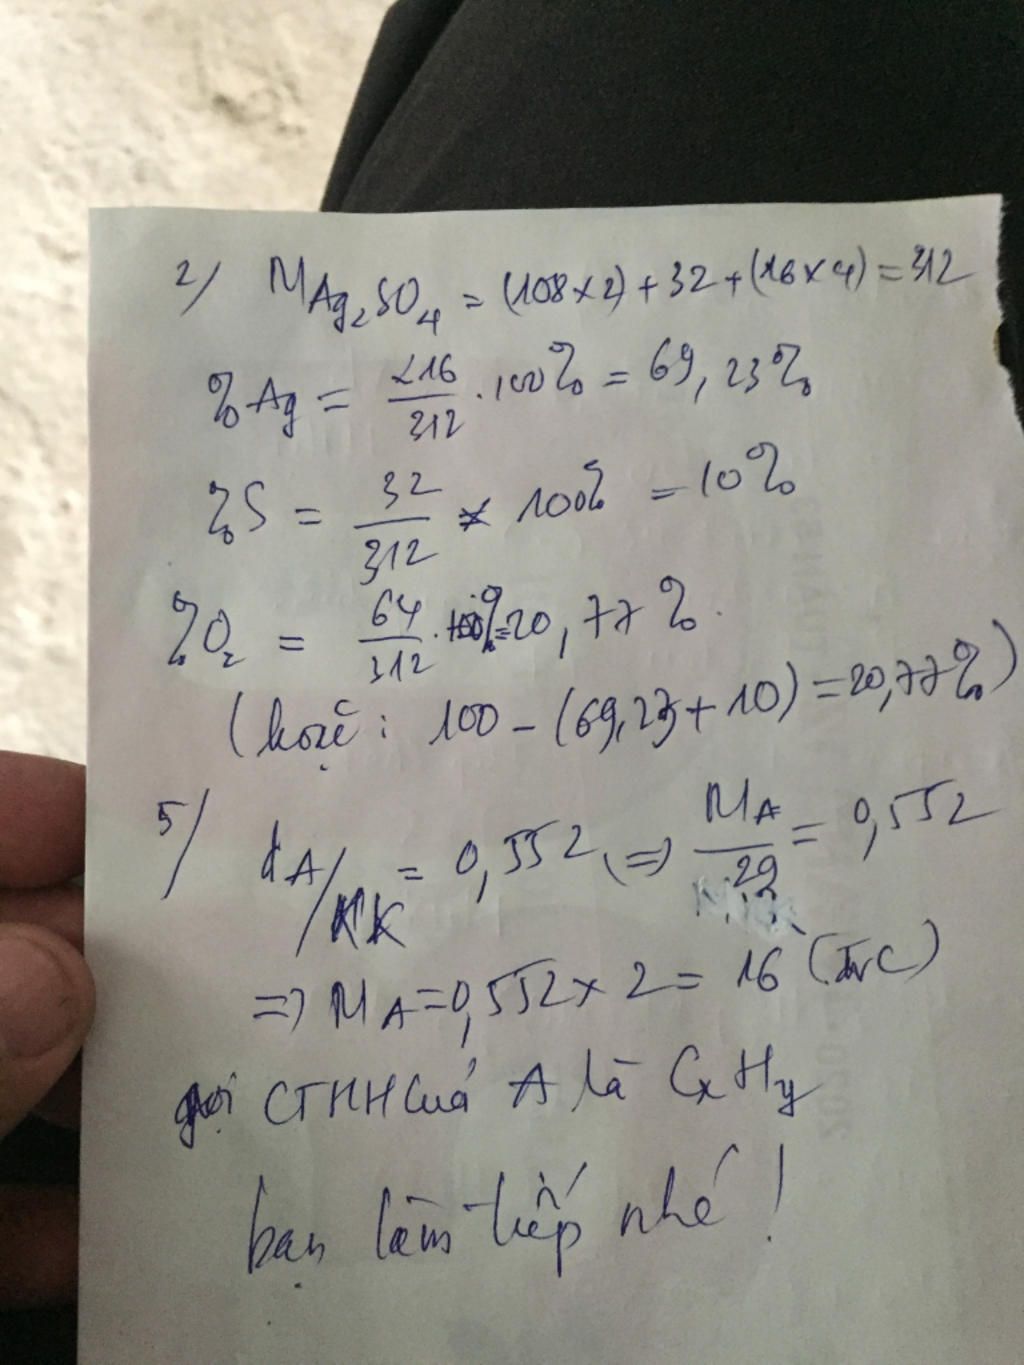 2/ M Ag₂SO₄ = (108 x 2) + 32 + (16 x 4) = 312
% Ag = 216/312 . 100% = 69,23%
% S = 32/312 x 100% = 10%
% O₂ = 64/312 . 100% = 20,77%.
(hoặc: 100 - (69,23 + 10) = 20,77%)
5/ d A/KK = 0,552 (=) M A/29 = 0,552
=) M A = 0,552 x 2 = 16 (ĐVC)
gọi CTHH của A là CxHy
bạn làm tiếp nhé!